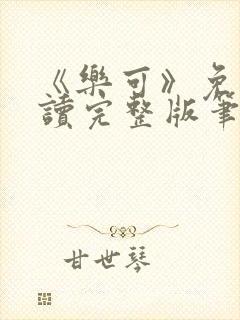 《樂可》免
讀完整版筆
甘世琴